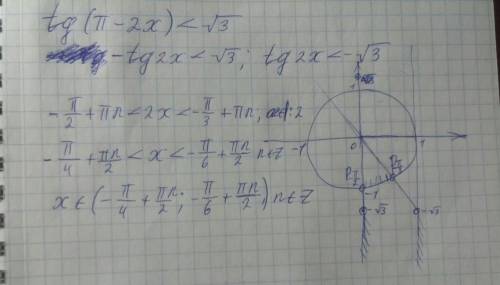 tg(π-2x)<√3
-tg2x<√3; tg2x<-√3
-π/2+πn<2x<-π/3+πn; :2
-π/4+πn/2<x<-π/6+πn/2 n∈Z
x∈(-π/4+πn/2; -π/6+πn/2) n∈Z
1
-1 0 1
-1
-√3 -√3